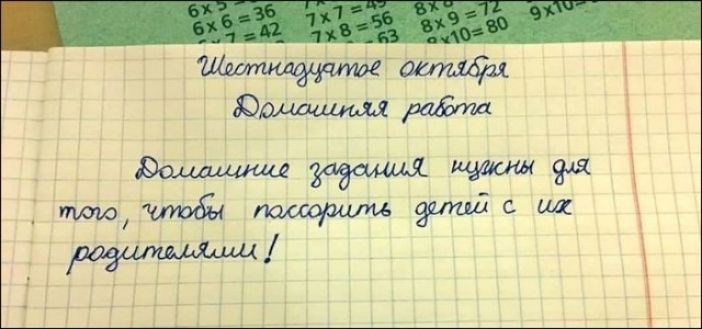 6 x 5
6 x 6 = 36
x 7 = 42
7 x 7 = 49
7 x 8 = 56
63
8 x 8
8 x 9 = 72
8x10= 80
9x10=
Шестнадцатое октября
Домашняя работа
Домашние задания нужны для
того, чтобы поссорить детей с их
родителями!